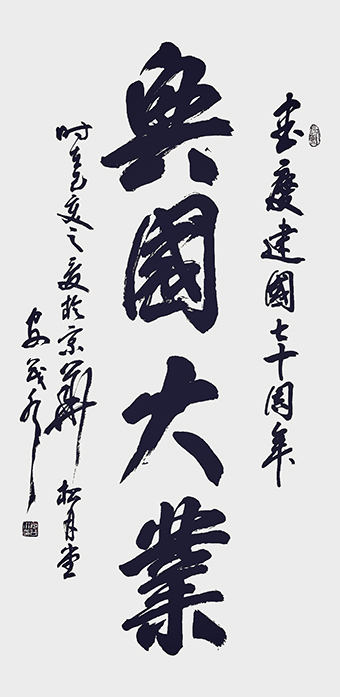 書慶建國七十周年
興國大業
时在己亥之夏於京華 松月堂